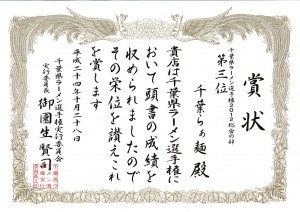 賞状
千葉県ラーメン選手権2012総合の部
第三位
千葉らぁ麺殿
貴店は千葉県ラーメン選手権に
おいて頭書の成績を
収められましたので
その栄位を讃えこれ
を賞します
平成二十四年十月二十八日
千葉県ラーメン選手権実行委員会
実行委員長
御園生賢司